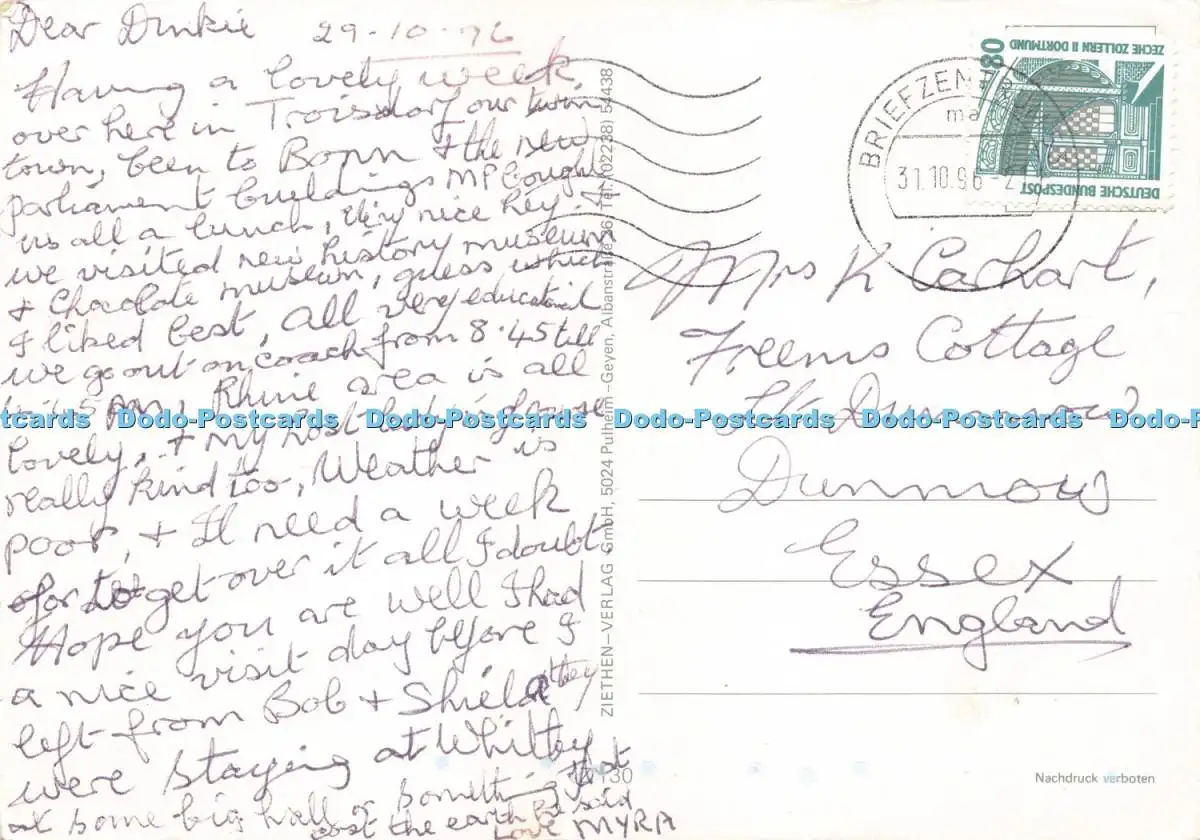 Dear Dinkie 29-10-96
Having a lovely week
over here in Troisdorf our twin
town, been to Bonn & the new
parliament buildings MP bought
us all a lunch, very nice hey. &
we visited new history museum
& Chocolate museum, guess which
I liked best, all very educational
we go out on coach from 8.45 till
pm, Rhine area is all
lovely, & my host lady's house
really kind too, Weather is
poor, & Il need a week
for to get over it all I doubt.
Hope you are well I had
a nice visit day before I
left from Bob & Shiela they
were staying at Whitby
at some big hall or something that
cost the earth he said
Love MYRA
ZIETHEN-VERLAG GmbH, 5024 Pulheim-Geyen, Albanstraße Tel. (02238) 54438
130
BRIEFZEN
31.10.96-21
80
ZECHE ZOLLERN II DORTMUND
DEUTSCHE BUNDESPOST
Mrs K Carhart,
Freems Cottage
Dunmow
Dunmow
Essex
England
Nachdruck verboten
Dodo-Postcards Dodo-Postcards Dodo-Postcards Dodo-Postcards Dodo-Postcards